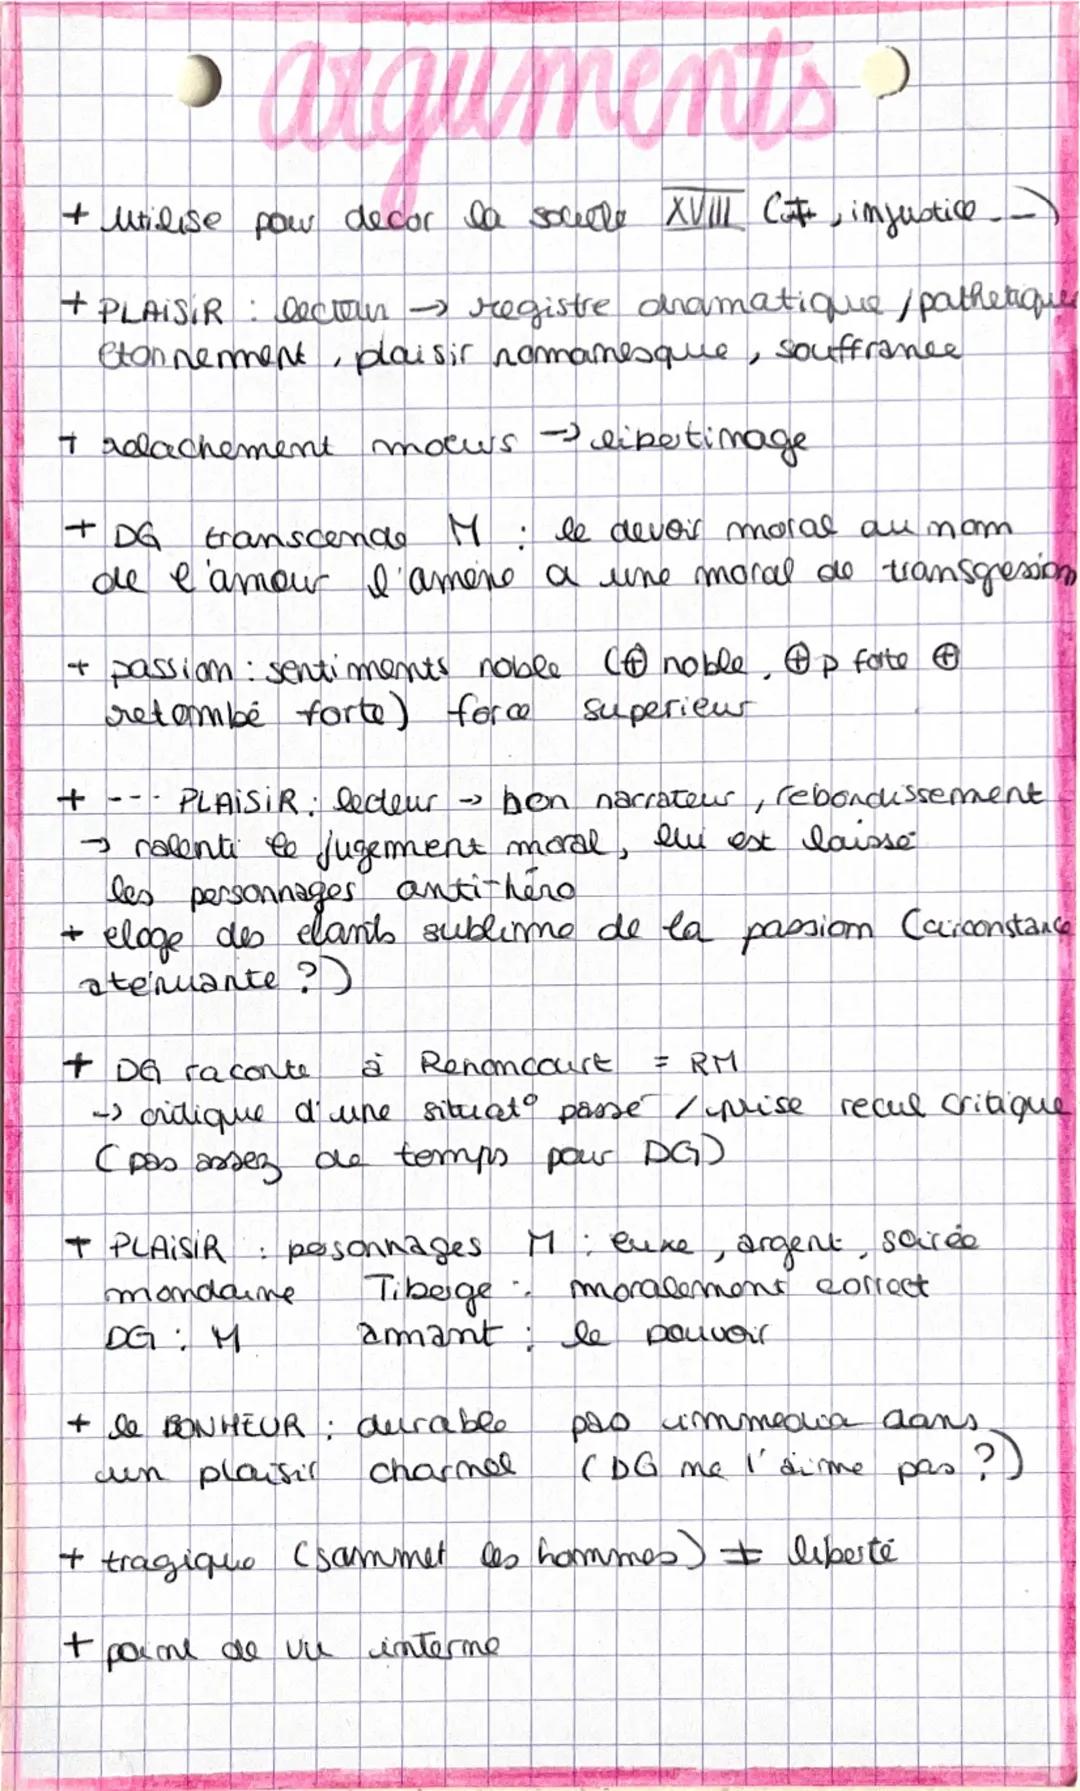 arguments
+ utilise pour decor la société XVIII ( , injustice ---)
+ PLAISIR : lecteur → registre dramatique / pathetique
étonnement, plaisir romanesque, souffrance
+ relachement moeurs → libertinage
+ DG transcende M : le devoir moral au nom
de l'amour l'amène a une moral de transgression
+ passion : sentiments noble (⊕ noble, ⊕ p forte ⊕
retombé forte) force superieur
+ --- PLAISIR : lecteur → bon narrateur, rebondissement
→ ralenti le jugement moral, lui est laissé
les personnages anti-héro
+ eloge des élants sublime de la passion (circonstance
aténuante ?)
+ DG raconte à Renoncourt = RM
→ critique d'une situat° passé / prise recul critique
(pas assez de temps pour DG)
+ PLAISIR : pesonnages M : luxe, argent, soirée
mondaine Tiberge : moralement correct
DG : M amant : le pouvoir
+ le BONHEUR : durable pas immediat dans
un plaisir charnel (DG ne l'aime pas ?)
+ tragique (sammet les hommes) ≠ liberté
+ point de vu interne